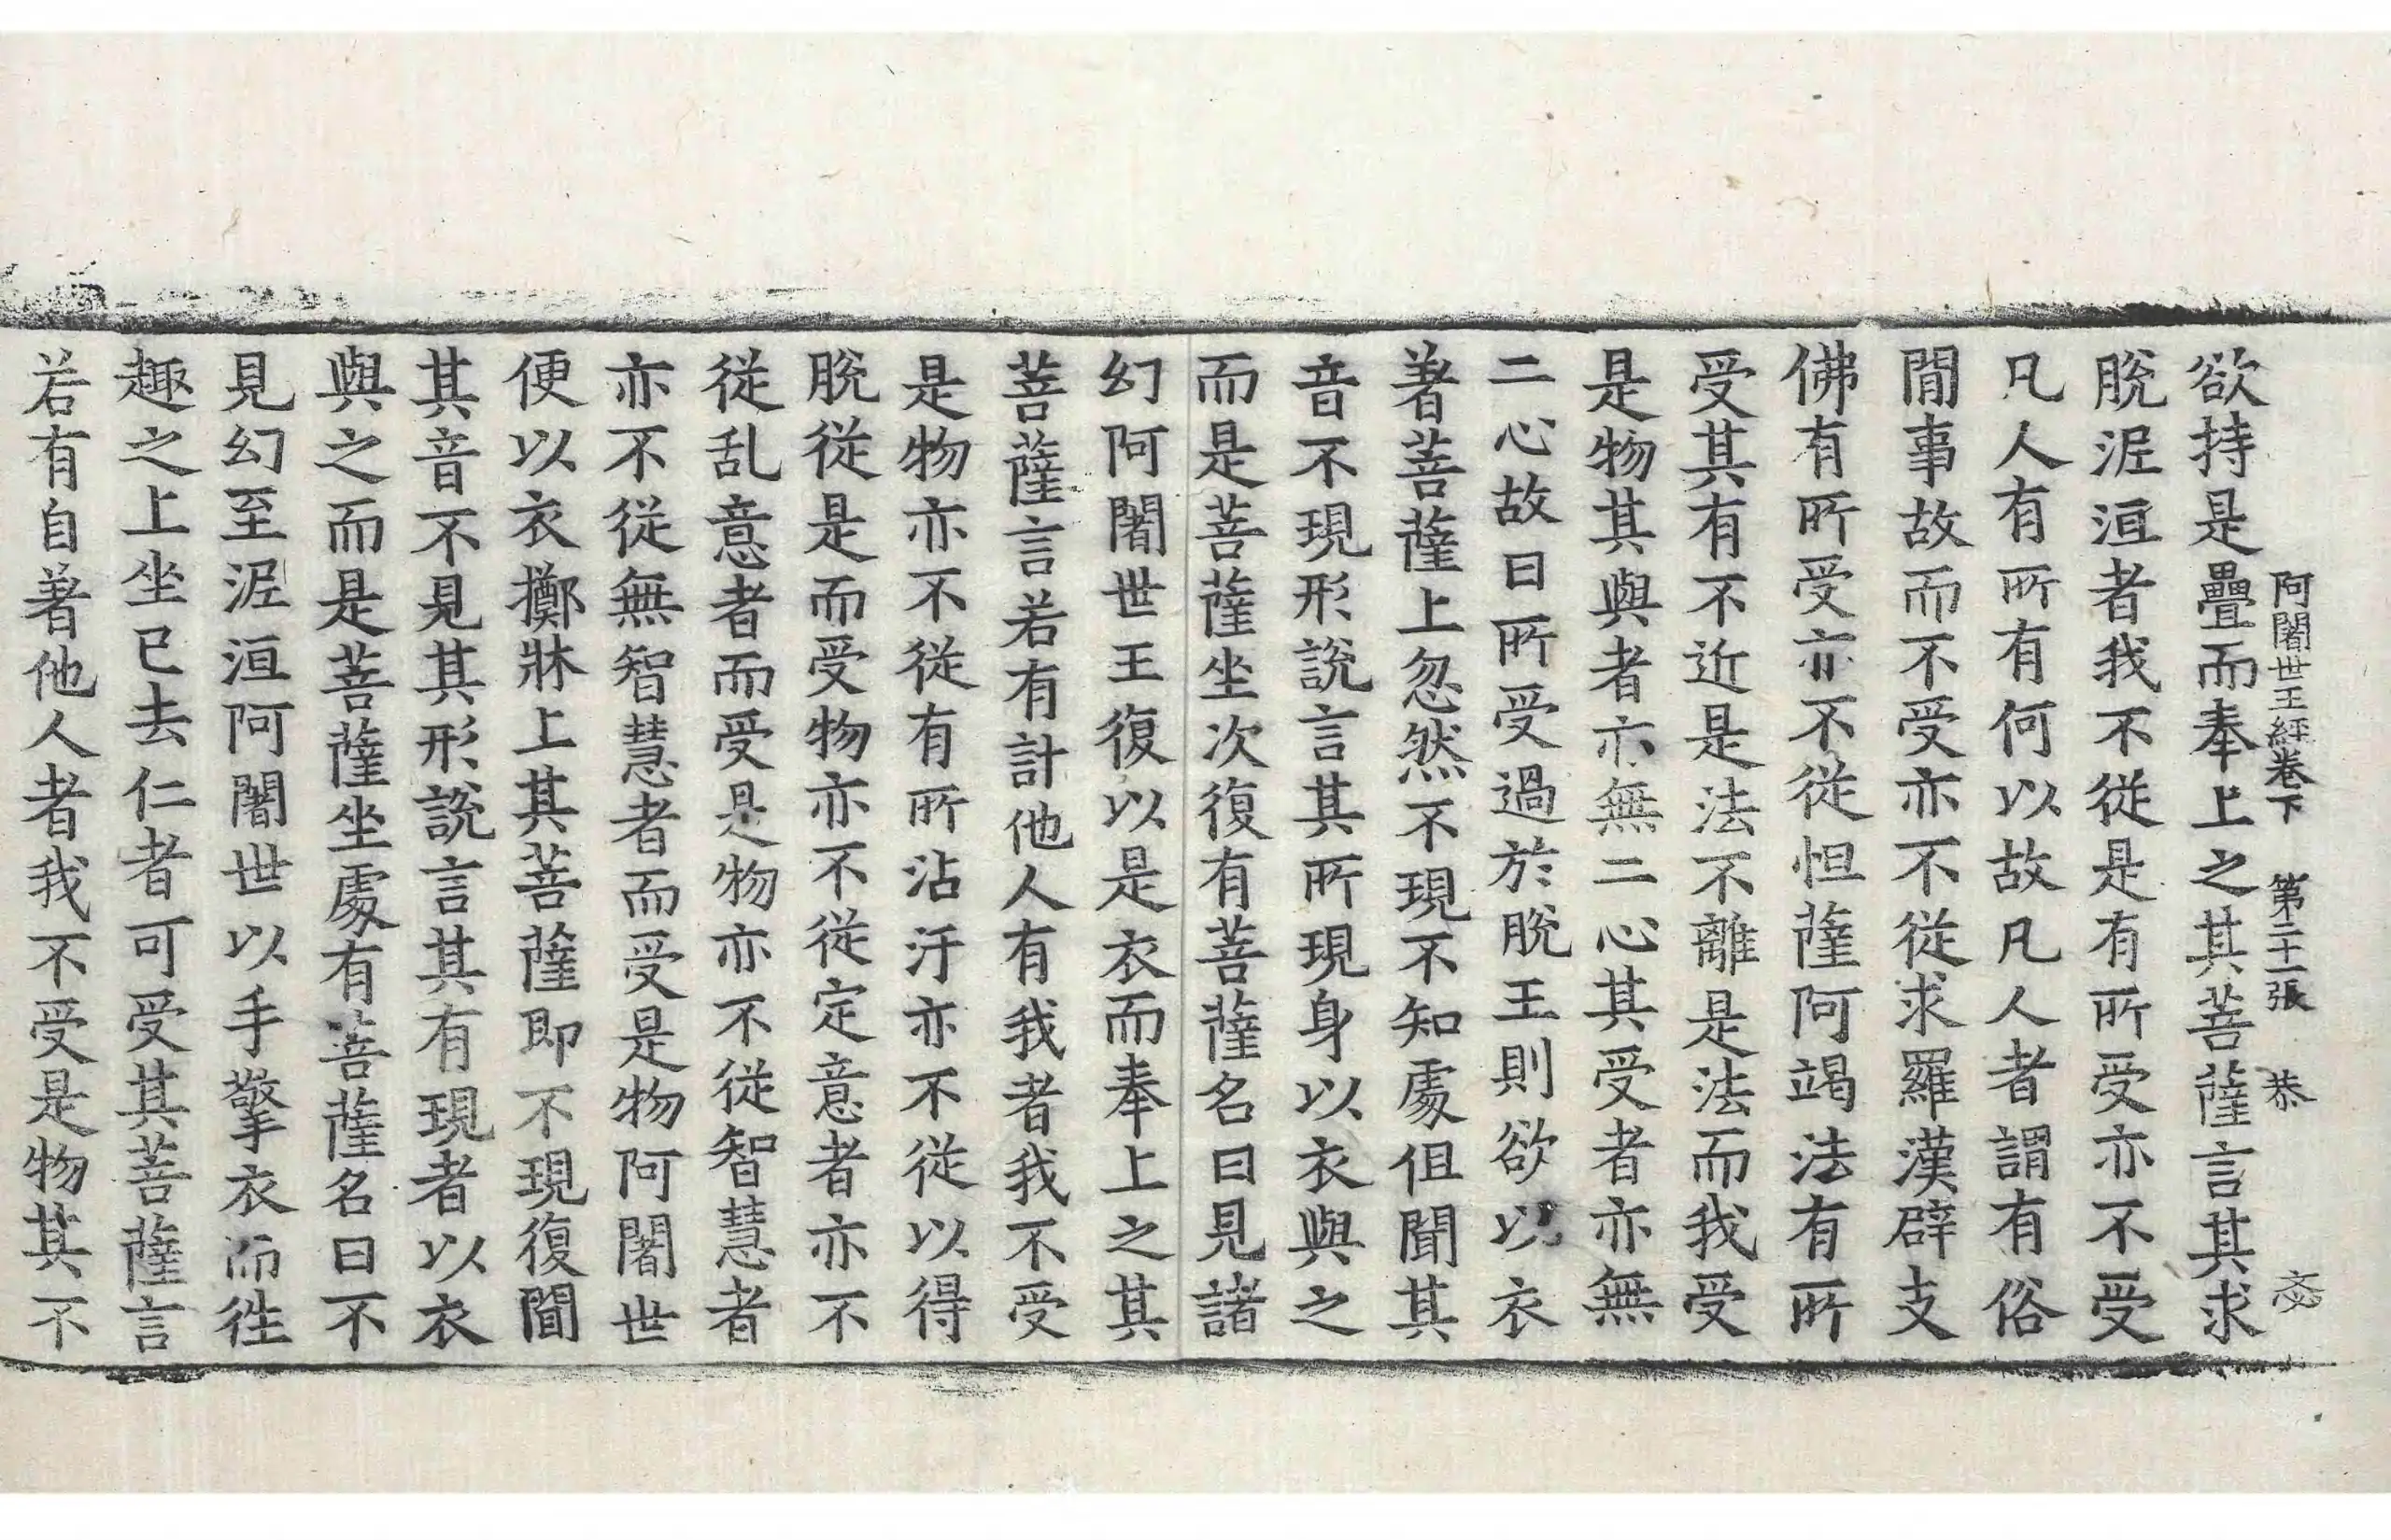 阿闍世王經卷下 第二十一張 恭
欲持是疊而奉上之其菩薩言其求
脫泥洹者我不從是有所受亦不受
凡人有所有何以故凡人者謂有俗
閒事故而不受亦不從求羅漢辟支
佛有所受亦不從怛薩阿竭法有所
受其有不近是法不離是法而我受
是物其與者亦無二心其受者亦無
二心故曰所受過於脫王則欲以衣
著菩薩上忽然不現不知處但聞其
音不現形說言其所現身以衣與之
而是菩薩坐次復有菩薩名曰見諸
幻阿闍世王復以是衣而奉上之其
菩薩言若有計他人有我者我不受
是物亦不從有所沾汙亦不從以得
脫從是而受物亦不從定意者亦不
從乱意者而受是物亦不從智慧者
亦不從無智慧者而受是物阿闍世
便以衣擲牀上其菩薩即不現復聞
其音不見其形說言其有現者以衣
與之而是菩薩坐處有菩薩名曰不
見幻至泥洹阿闍世以手擎衣而往
趣之上坐已去仁者可受其菩薩言
若有自著他人者我不受是物其不